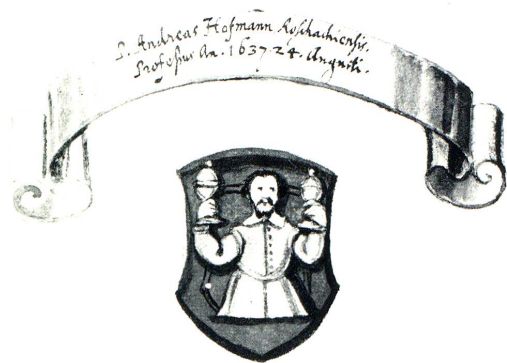 P. Andreas Hofmann Roschachiensis.
Professus An. 1637. 24. Augusti.